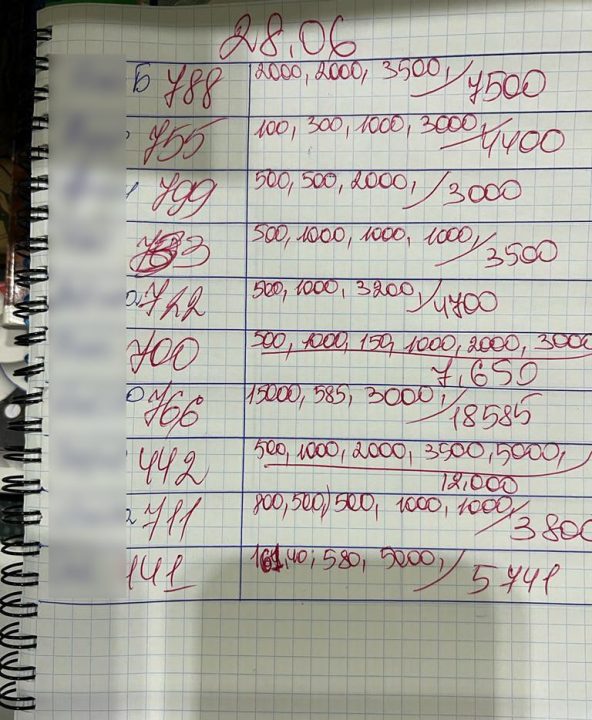 28.06
788 2000, 2000, 3500, / 7500
755 100, 300, 1000, 3000, / 4400
799 500, 500, 2000, / 3000
500, 1000, 1000, 1000, / 3500
722 500, 1000, 3200, / 4700
700 500, 1000, 150, 1000, 2000, 3000
7,650
766 15000, 585, 3000, / 18585
442 500, 1000, 2000, 3500, 5000,
12.000
711 800, 500, 500, 1000, 1000, / 3800
141 580, 5000, / 5741